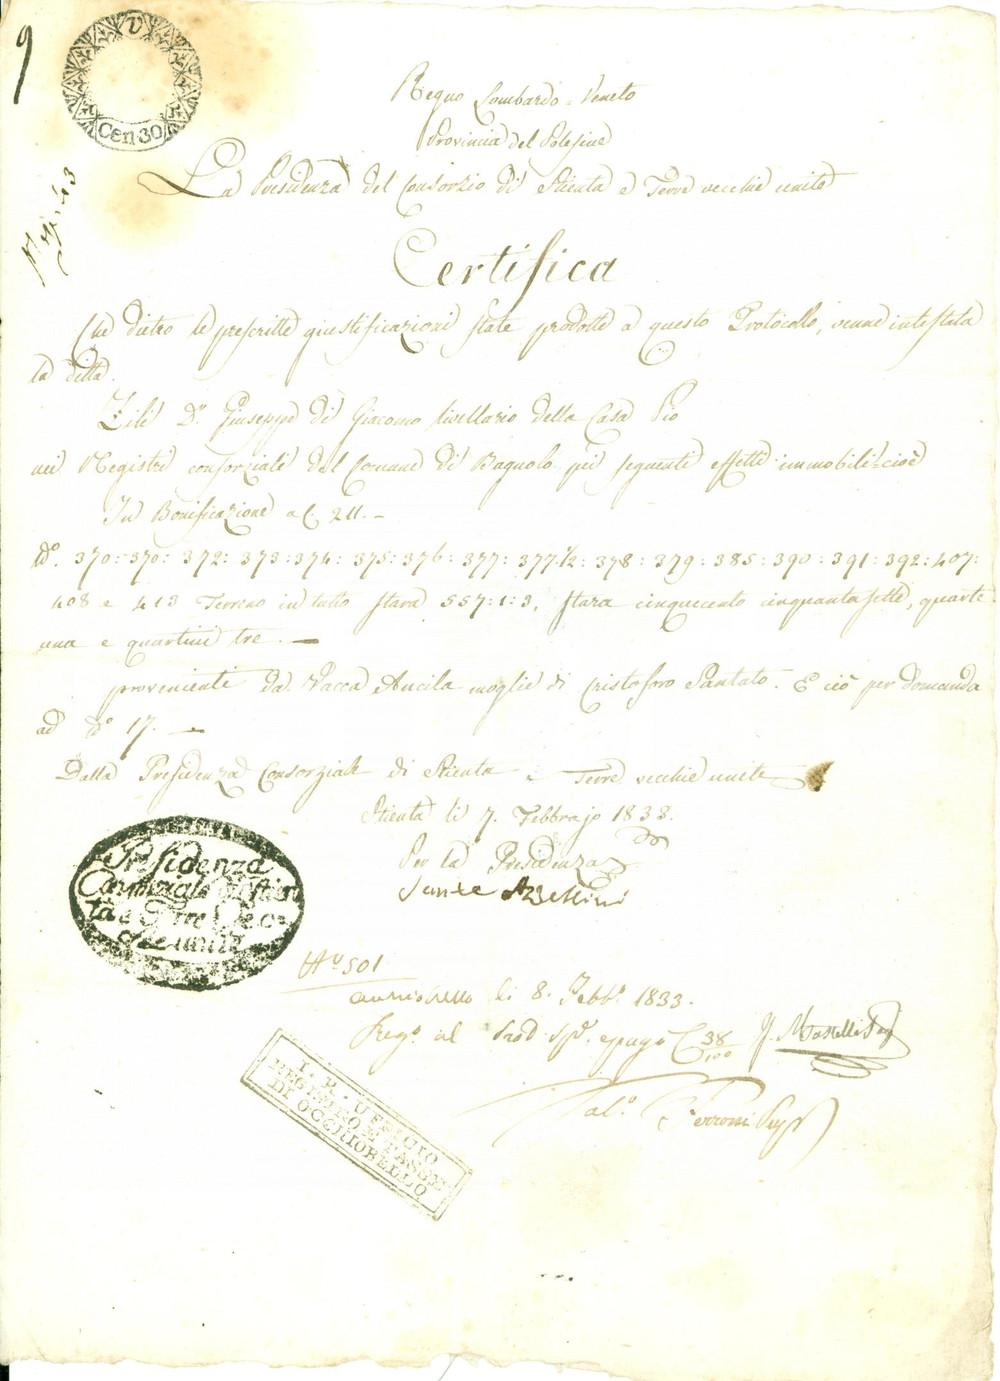 9
V
CEN 30
Regno Lombardo=Veneto
Provincia del Polesine
La Presidenza del Consorzio di Stienta e Terre vecchie unite
Certifica
Che dietro le prescritte giustificazioni state prodotte a questo Protocollo, venne intestata
la ditta.
Zilli Dr. Giuseppe di Giacomo livellario della Casa Pio
nei Registri consorziali del Comune di Bagnolo pei seguenti effetti immobili cioè
In Bonificazione a C. 211. -
No. 370: 370: 372: 373: 374: 375: 376: 377: 377 1/2: 378: 379: 385: 390: 391: 392: 407:
408 e 413 Terreno in tutto stara 557:1:3, stara cinquecento cinquantasette, quarte
una e quartini tre. —
provenienti da Vacca Ancila moglie di Cristoforo Pantato. E ciò per domanda
ad No 17. —
Dalla Presidenza Consorziale di Stienta e Terre vecchie unite
Stienta li 7. Febbrajo 1833.
Per la Presidenza
Presidenza
Consorziale di Stien
ta e Terre Vec=
chie unite
No 501
Occhiobello li 8. Febbo. 1833.
Rego. al e pago C 38/100
I. R. UFFICIO
REGISTRO E TASSE
DI OCCHIOBELLO